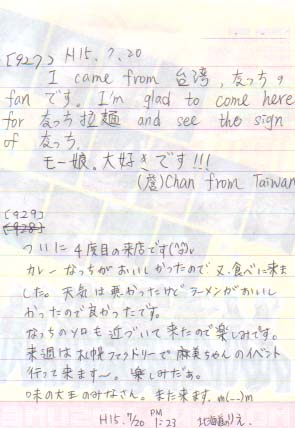 [927] H15.7.20
I came from 台湾, 友っちの
fan です。I'm glad to come here
for 友っち拉麺 and see the sign
of 友っち.
モー娘。大好きです!!!
(詹)Chan from Taiwan
[929]
[928]
ついに 4度目の来店です(^^)v
カレーなっちがおいしかったので 又、食べに来ま
した。天気は悪かったけどラーメンがおいし
かったので良かったです。
なっちのソロも近づいて来たので楽しみです。
来週は札幌ファクトリーで麻美ちゃんのイベント
行って来ます〜。楽しみだぁ。
味の大王のみなさん。また来ます。m(__)m
H15. 7/20 PM 1:23 北海道